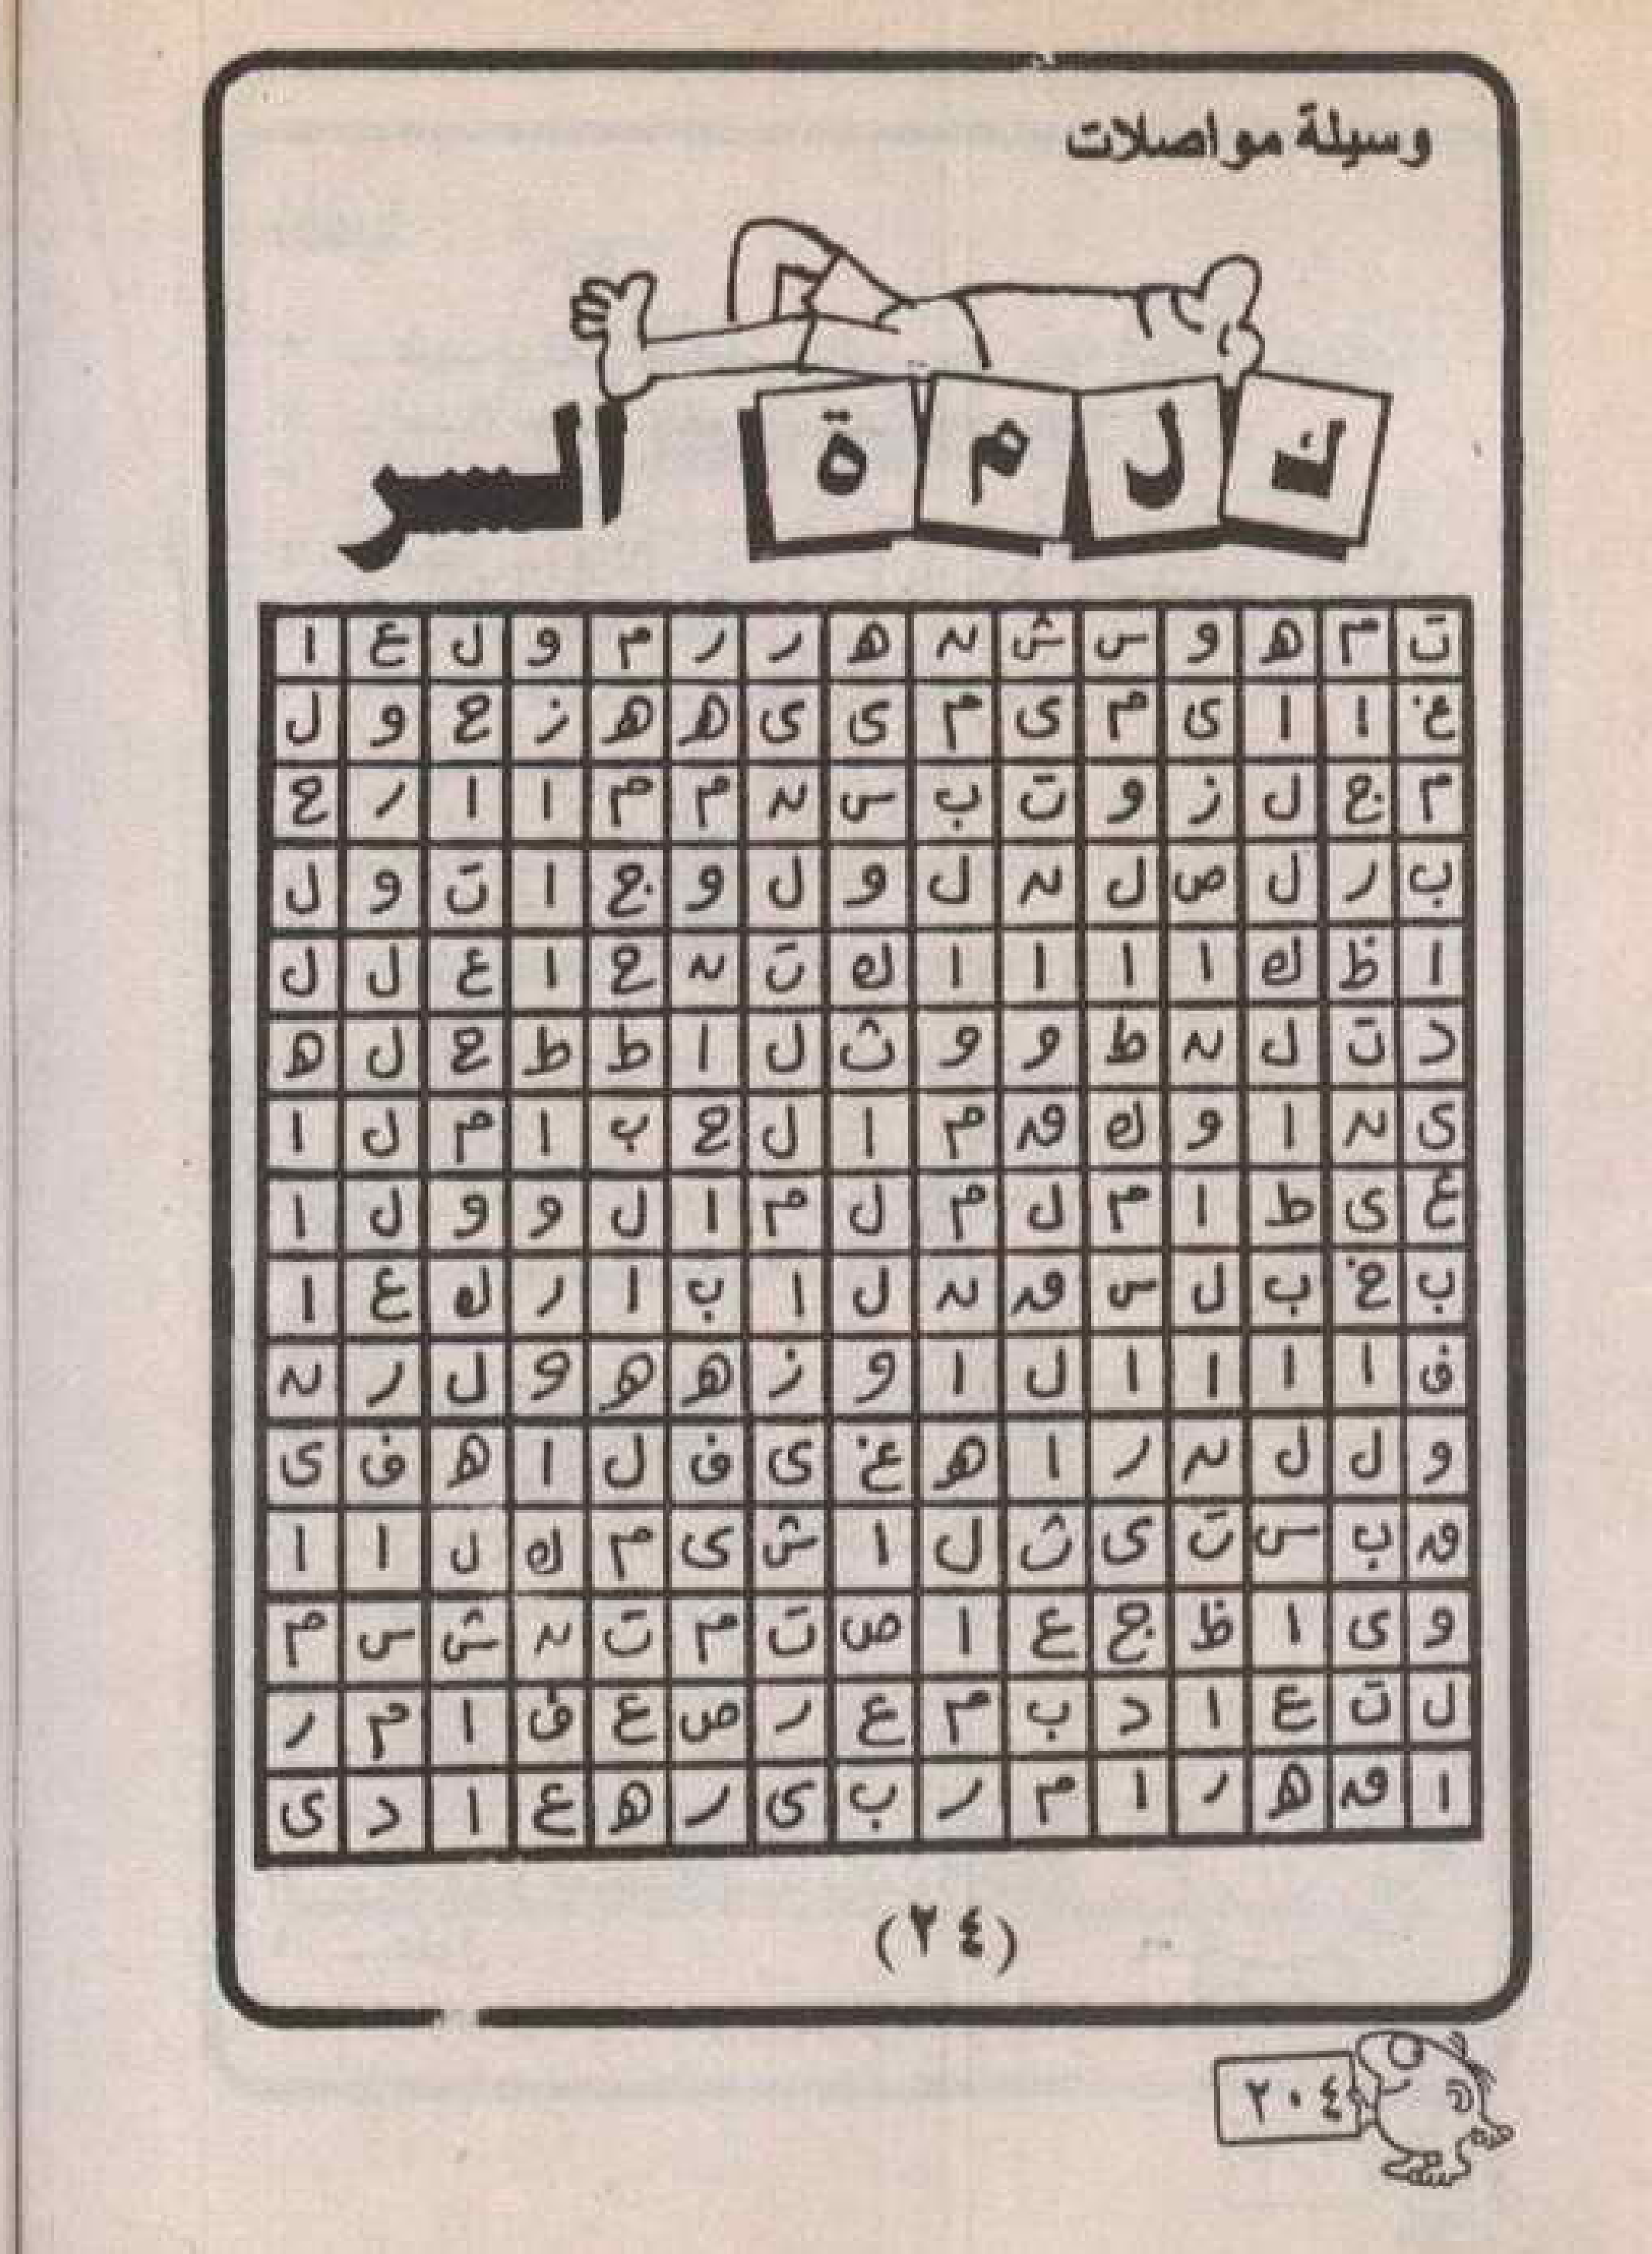 وسيلة مواصلات
كلمة السر
ت م ه و س ش ن ه ر ر م و ل ع ا
غ ا ا ى م ى م ى ى ه ه ز ح و ل
م ج ل ز و ت ب س ن م م ا ا ر ح
ب ر ل ص ل ن ل و ل و ج ا ت و ل
ا ظ ك ا ا ا ا ك ت ن ح ا ع ل ل
د ت ل ن ط و و ث ل ا ط ط ح ل ه
ى ن ا و ك ق م ا ل ح ب ا م ل ا
ع ى ط ا م ل م ل م ا ل و و ل ا
ب خ ب ل س ق ن ل ا ب ا ر ك ع ا
ف ا ا ا ا ل ا و ز ه ه و ل ر ن
و ل ل ن ر ا ه غ ى ف ل ا ه ف ى
ق ب س ت ى ث ل ا ش ى م ك ل ا ا
و ى ا ظ ج ع ا ص ت م ت ن ش س م
ل ت ع ا د ب م ع ر ص ع ف ا م ر
ا ق ه ر ا م ر ب ى ر ه ع ا د ى
(٢٤)
٢٠٤